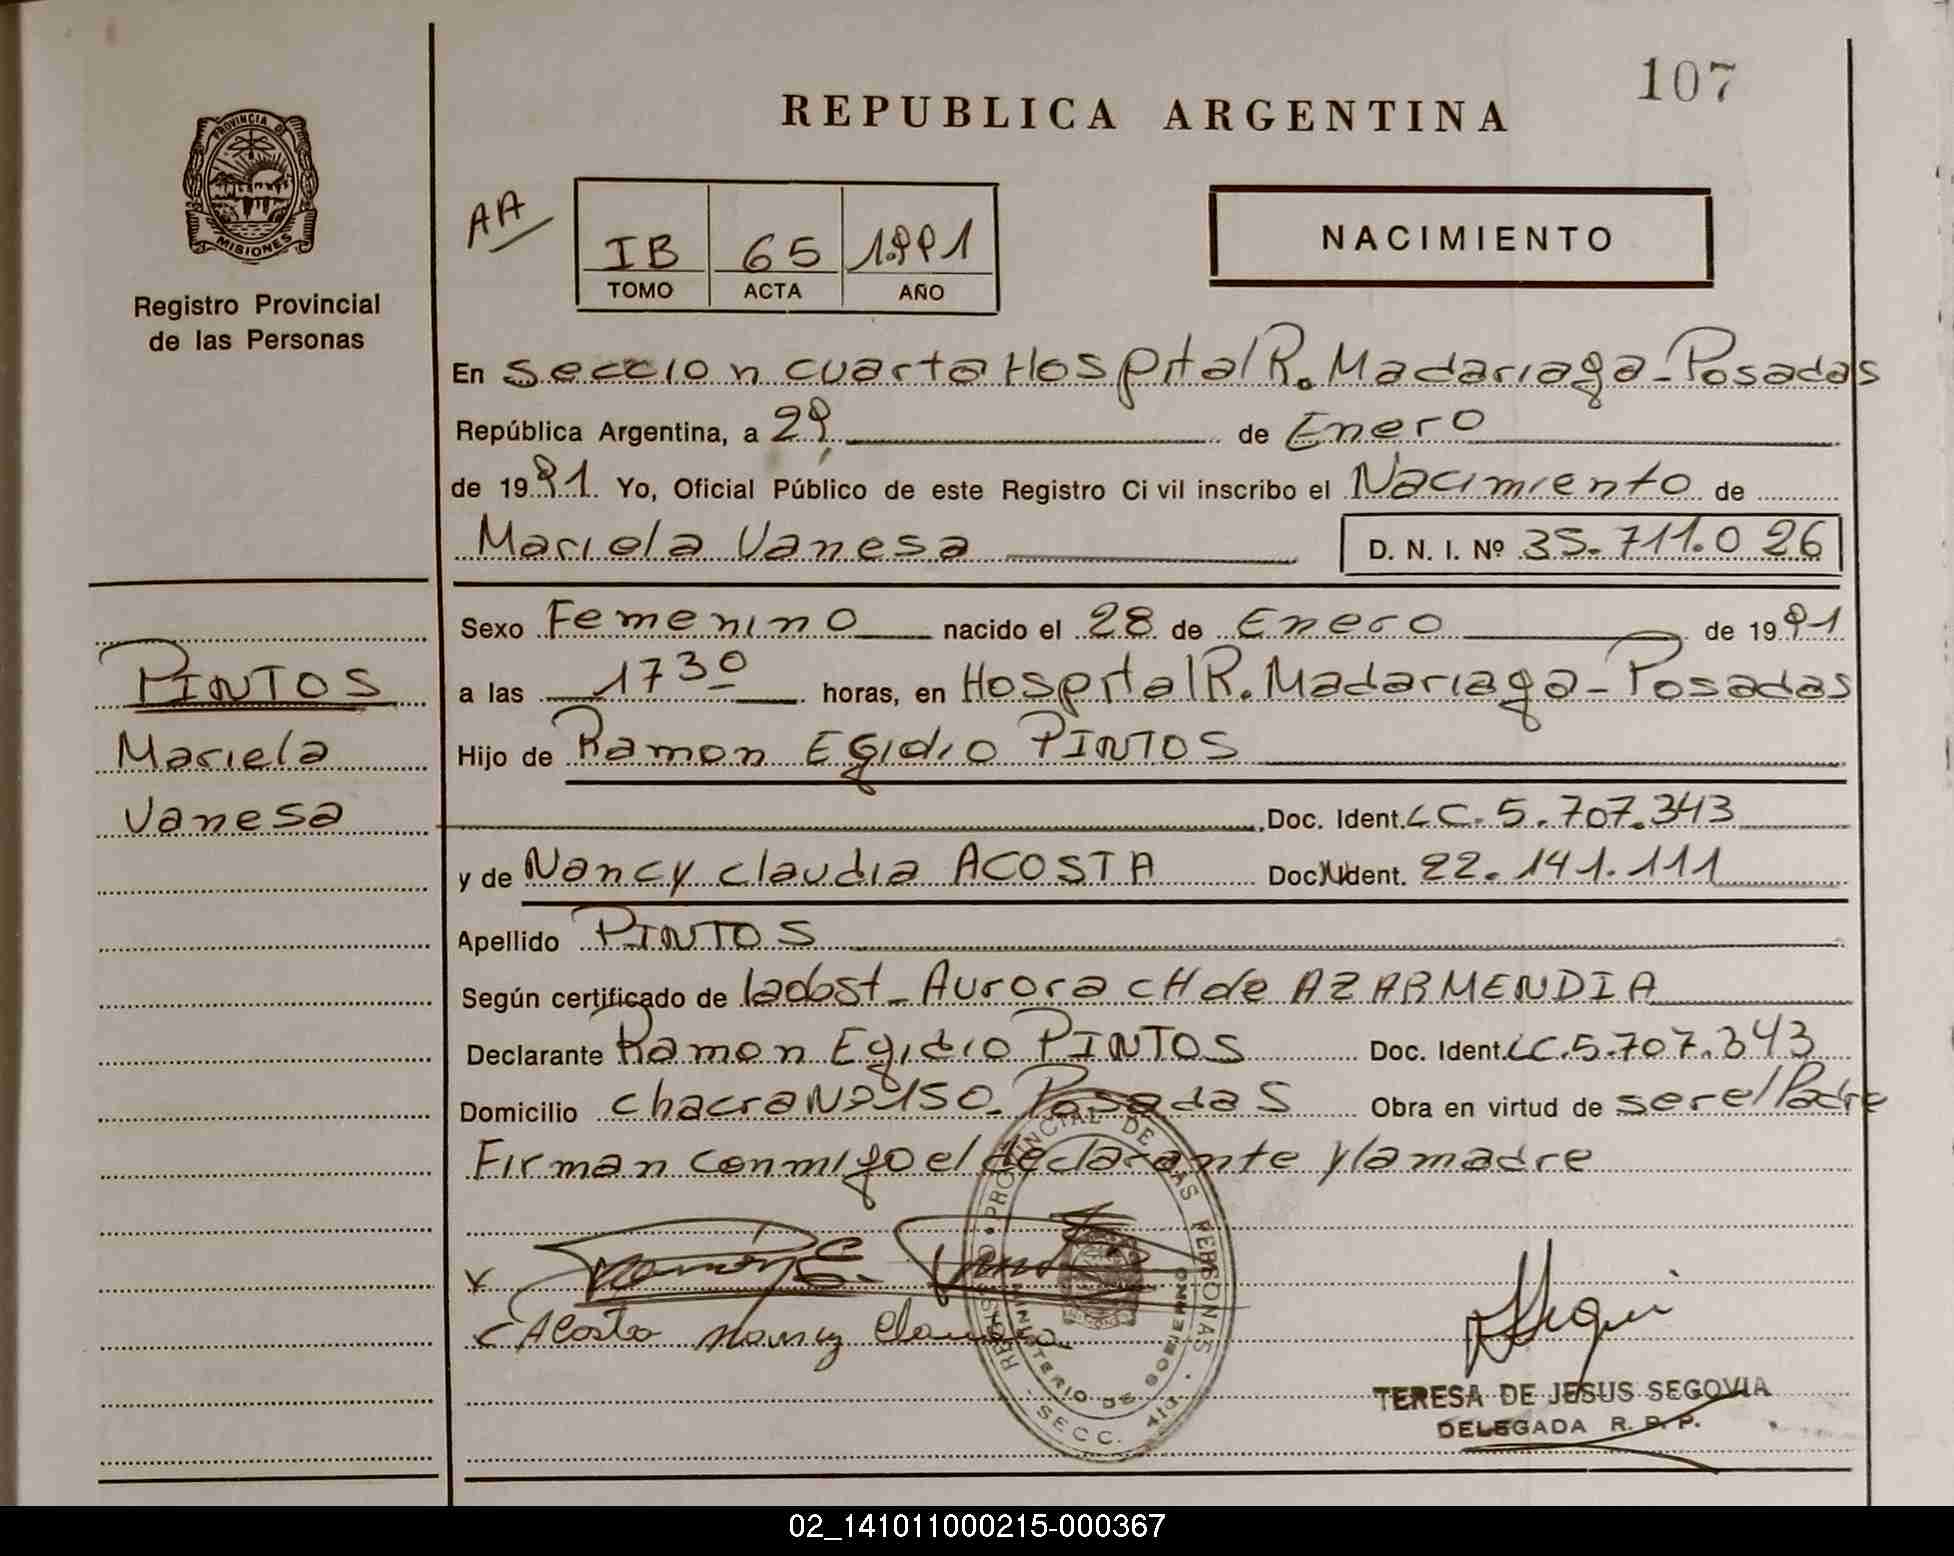 107
REPUBLICA ARGENTINA
PROVINCIA DE
MISIONES
Registro Provincial
de las Personas
AA
IB 65 1.991
TOMO ACTA AÑO
NACIMIENTO
En Seccion cuarta Hospital R. Madariaga - Posadas
República Argentina, a 29, de Enero
de 1991. Yo, Oficial Público de este Registro Civil inscribo el Nacimiento de
Mariela Vanesa D. N. I. Nº 35.711.026
Sexo Femenino nacido el 28 de Enero de 1991
a las 17 30 horas, en Hospital R. Madariaga - Posadas
PINTOS
Mariela
Vanesa
Hijo de Ramon Egidio PINTOS
Doc. Ident. LC. 5.707.343
y de Nancy Claudia ACOSTA Doc. Ident. 22.141.111
Apellido PINTOS
Según certificado de la obst. Aurora CH de AZARMENDIA
Declarante Ramon Egidio PINTOS Doc. Ident. LC. 5.707.343
Domicilio chacra Nº 150. Posadas Obra en virtud de ser el Padre
Firman conmigo el declarante y la madre
Acosta Nancy Claudia
REGISTRO PROVINCIAL DE LAS PERSONAS
MINISTERIO DE GOBIERNO
SECC. 4ta.
TERESA DE JESUS SEGOVIA
DELEGADA R. P. P.
02_141011000215-000367